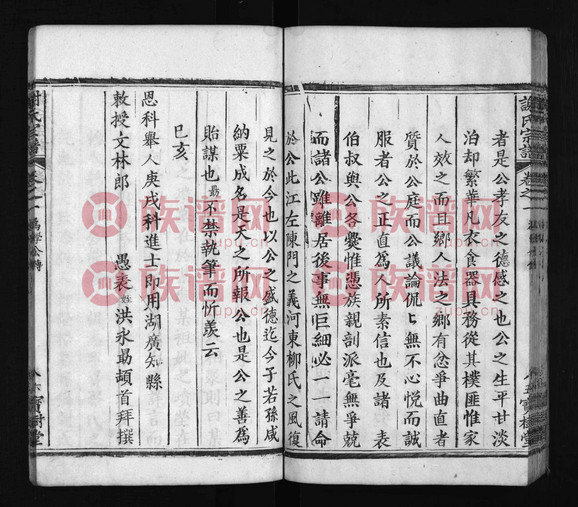 謝氏宗譜 卷之一
者是公孝友之德感之也公之生平甘淡
泊却繁華凡衣食器具務從其樸匪惟家
人效之而且鄉人法之鄉有忿爭曲直者
質於公庭而公議論侃匕無不心悅而誠
服者公之正直為人所素信也及諸 袁
伯叔與公各爨惟憑族親剖派毫無爭兢
而諸公雖離居後事無巨細必一一請命
於公此江左陳門之義河東柳氏之風復
寶樹堂
見之於今也以公之盛德迄今子若孫咸
納粟成名是天之所報公也是公之善為
貽謀也最不禁執筆而忻羨云
巳亥
恩科舉人庚戌科進士即用湖廣知縣
敕授文林郎 愚表姪洪永勛頓首拜撰
謝氏宗譜 卷之一
寶樹堂
族谱网
zupu.cn
族谱网
zupu.cn
族谱网
zupu.cn
族谱网
zupu.cn
族谱网
zupu.cn
族谱网
zupu.cn